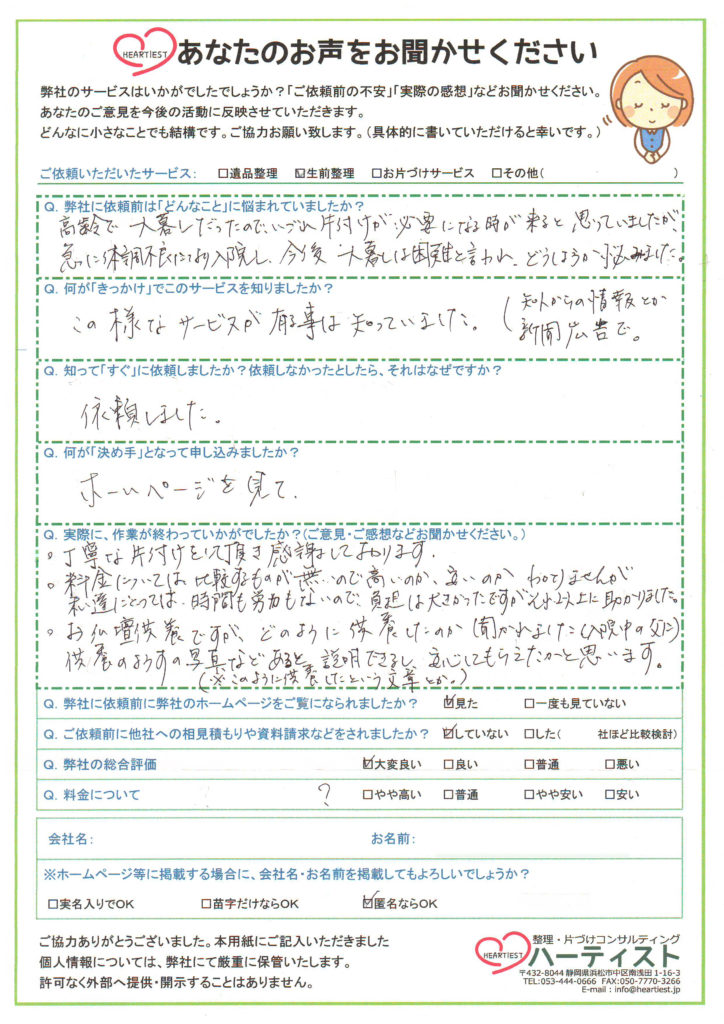 HEARTIEST あなたのお声をお聞かせください
弊社のサービスはいかがでしたでしょうか？「ご依頼前の不安」「実際の感想」などお聞かせください。
あなたのご意見を今後の活動に反映させていただきます。
どんなに小さなことでも結構です。ご協力お願い致します。（具体的に書いていただけると幸いです。）
ご依頼いただいたサービス： □遺品整理 ☑生前整理 □お片づけサービス □その他（ ）
Q. 弊社に依頼前は「どんなこと」に悩まれていましたか？
高齢で一人暮しだったので、いづれ片付けが必要になる時が来ると思っていましたが、
急に体調不良になり入院し、今後一人暮しは困難と言われ、どうしようか悩みました。
Q. 何が「きっかけ」でこのサービスを知りましたか？
この様なサービスが有る事は知っていました。（知人からの情報とか
新聞広告で。
Q. 知って「すぐ」に依頼しましたか？依頼しなかったとしたら、それはなぜですか？
依頼しました。
Q. 何が「決め手」となって申し込みましたか？
ホームページを見て、
Q. 実際に、作業が終わっていかがでしたか？（ご意見・ご感想などお聞かせください。）
。丁寧な片付けをして頂き感謝しております。
。料金については比較するものが無いので高いのか、安いのかわかりませんが
私達にとっては、時間も労力もないので、負担は大きかったですがそれ以上に助かりました。
。お仏壇供養ですが、どのように供養したのか聞かれました（入院中の父に）
供養のようすの写真などあると、説明できるし、安心してもらえたかと思います。
（※このように供養したという文章とか。）
Q. 弊社に依頼前に弊社のホームページをご覧になられましたか？ ☑見た □一度も見ていない
Q. ご依頼前に他社への相見積もりや資料請求などをされましたか？ ☑していない □した（ 社ほど比較検討）
Q. 弊社の総合評価 ☑大変良い □良い □普通 □悪い
Q. 料金について ? □やや高い □普通 □やや安い □安い
会社名： お名前：
※ホームページ等に掲載する場合に、会社名・お名前を掲載してもよろしいでしょうか？
□実名入りでOK □苗字だけならOK ☑匿名ならOK
ご協力ありがとうございました。本用紙にご記入いただきました
個人情報については、弊社にて厳重に保管いたします。
許可なく外部へ提供・開示することはありません。
整理・片づけコンサルティング
HEARTIEST ハーティスト
〒432-8044 静岡県浜松市中区南浅田 1-16-3
TEL:053-444-0666 FAX:050-7770-3266
E-mail：info@heartiest.jp